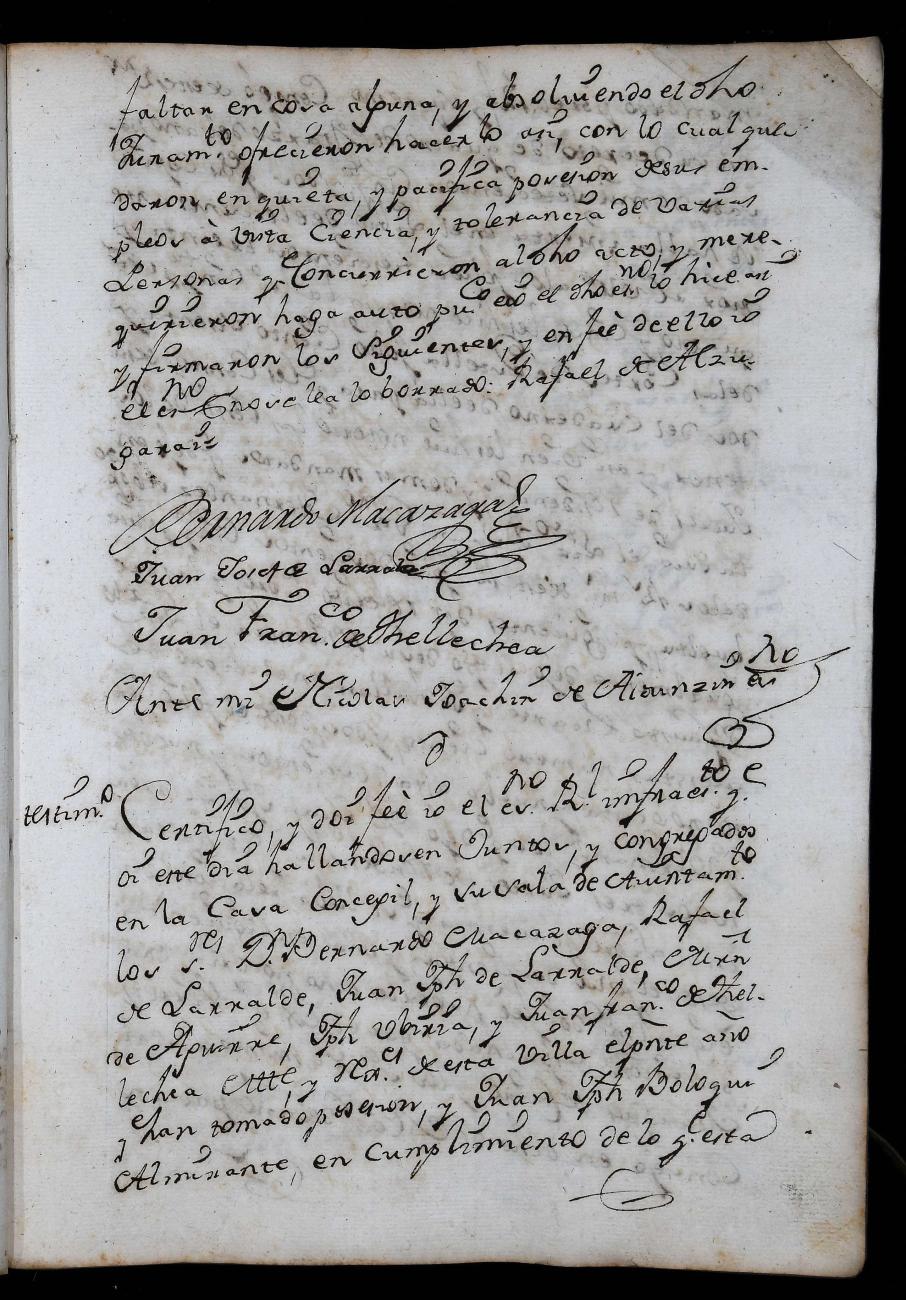 faltar en cosa alguna, y absolviendo el dho
Juram.to ofrecieron hacerlo asi, con lo cual que
daron en quieta, y pacifica posesion de sus em-
pleos à vista Ciencia, y tolerancia de varias
Personas q.e Concurrieron al dho acto, y me re-
quirieron haga auto pu.co e io el dho es.no lo hice asi
y firmaron los Siguientes, y en feè de ello io
el es.no no se lea lo borrado: Rafael de Alzu-
garai=
Bernardo Macazaga
Juan Josef de Larralde
Juan Fran.co de Thellechea
Ante mi Nicolas Joachin de Aizunzin es.no
testim.o Certifico, y doi feè io el es.no R.l infraes.to q.e
oi este dia hallandose en Juntos, y congregados
en la Casa Concegil, y su sala de Aiuntam.to
los s.res D.n Bernardo Macazaga, Rafael
de Larralde, Juan Jph de Larralde, Mrn
de Aguirre, Jph Ubiria, y Juan fran.co de Thel-
lechea Alc.e, y Rex.es de esta villa el pnte año
q.e han tomado posesion, y Juan Jph Bologui
Almirante, en cumplimiento de lo q.e esta